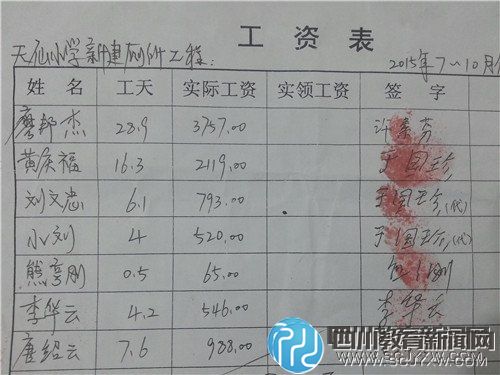 工资表
天仙小学新建厕所工程:
2015年7~10月
姓名 工天 实际工资 实领工资 签字
廖邦杰 28.9 3757.00 许素芬
黄庆福 16.3 2119.00 于国珍
刘文忠 6.1 793.00 于国珍(代)
小刘 4 520.00 于国珍(代)
熊 刚 0.5 65.00
李华云 4.2 546.00 李华云
唐绍云 7.6 988.00
四川教育新闻网
WWW.SCJYXW.COM